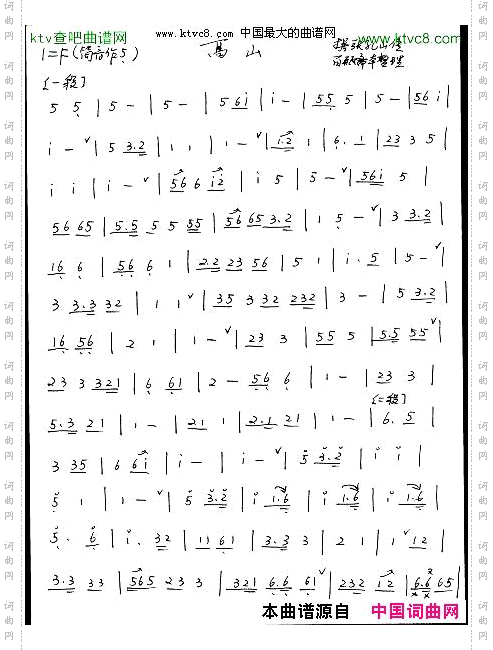 ktv查吧曲谱网 www.ktvc8.com 中国最大的曲谱网 www.ktvc8.com
1=F(筒音作5) 高山
[一段]
5 5 | 5 - | 5 - | 5 6 i | i - | 5 5 5 | 5 - | 5 6 i |
i - | 5 3.2 | 1 1 | 1 - | 1.2 1 | 6. 1 | 2 3 3 5 |
i i | i - | 5 6 6 i 2 | i 5 | 5 - | 5 6 i 5 |
5 6 6 5 | 5.5 5 5 5 5 | 5 6 6 5 3.2 | 1 5 - | 3 3.2 |
1 6 6 | 5 6 6 1 | 2.2 2 3 5 6 | 5 1 | i. 5 | 5 - |
3 3.3 3 2 | 1 1 | 3 5 3 3 2 2 3 2 | 3 - | 5 3.2 |
1 6 5 6 | 2 1 | 1 - | 2 3 3 | 5 5 5 | 5.5 5 5 |
2 3 3 3 2 1 | 6 6 1 | 2 - 5 6 6 | 1 - | 2 3 3 |
[二段]
5.3 2 1 | 1 - | 2 1 1 | 2.1 2 1 | 1 - | 6. 5 |
3 3 5 | 6 6 i | i - | i - | 5 3.2 | i i |
5 1 | 1 - | 5 3.2 | i 1.6 | i 1.6 | i 1.6 |
5. 6 | i. 3 2 | 1 1 6 1 | 3.3 3 | 2 1 | 1 1 2 |
3.3 3 3 | 5 6 5 2 3 3 | 3 2 1 6.6 6 1 | 2 3 2 1 2 | 6.6 6 5 |
本曲谱源自 中国词曲网
词曲网